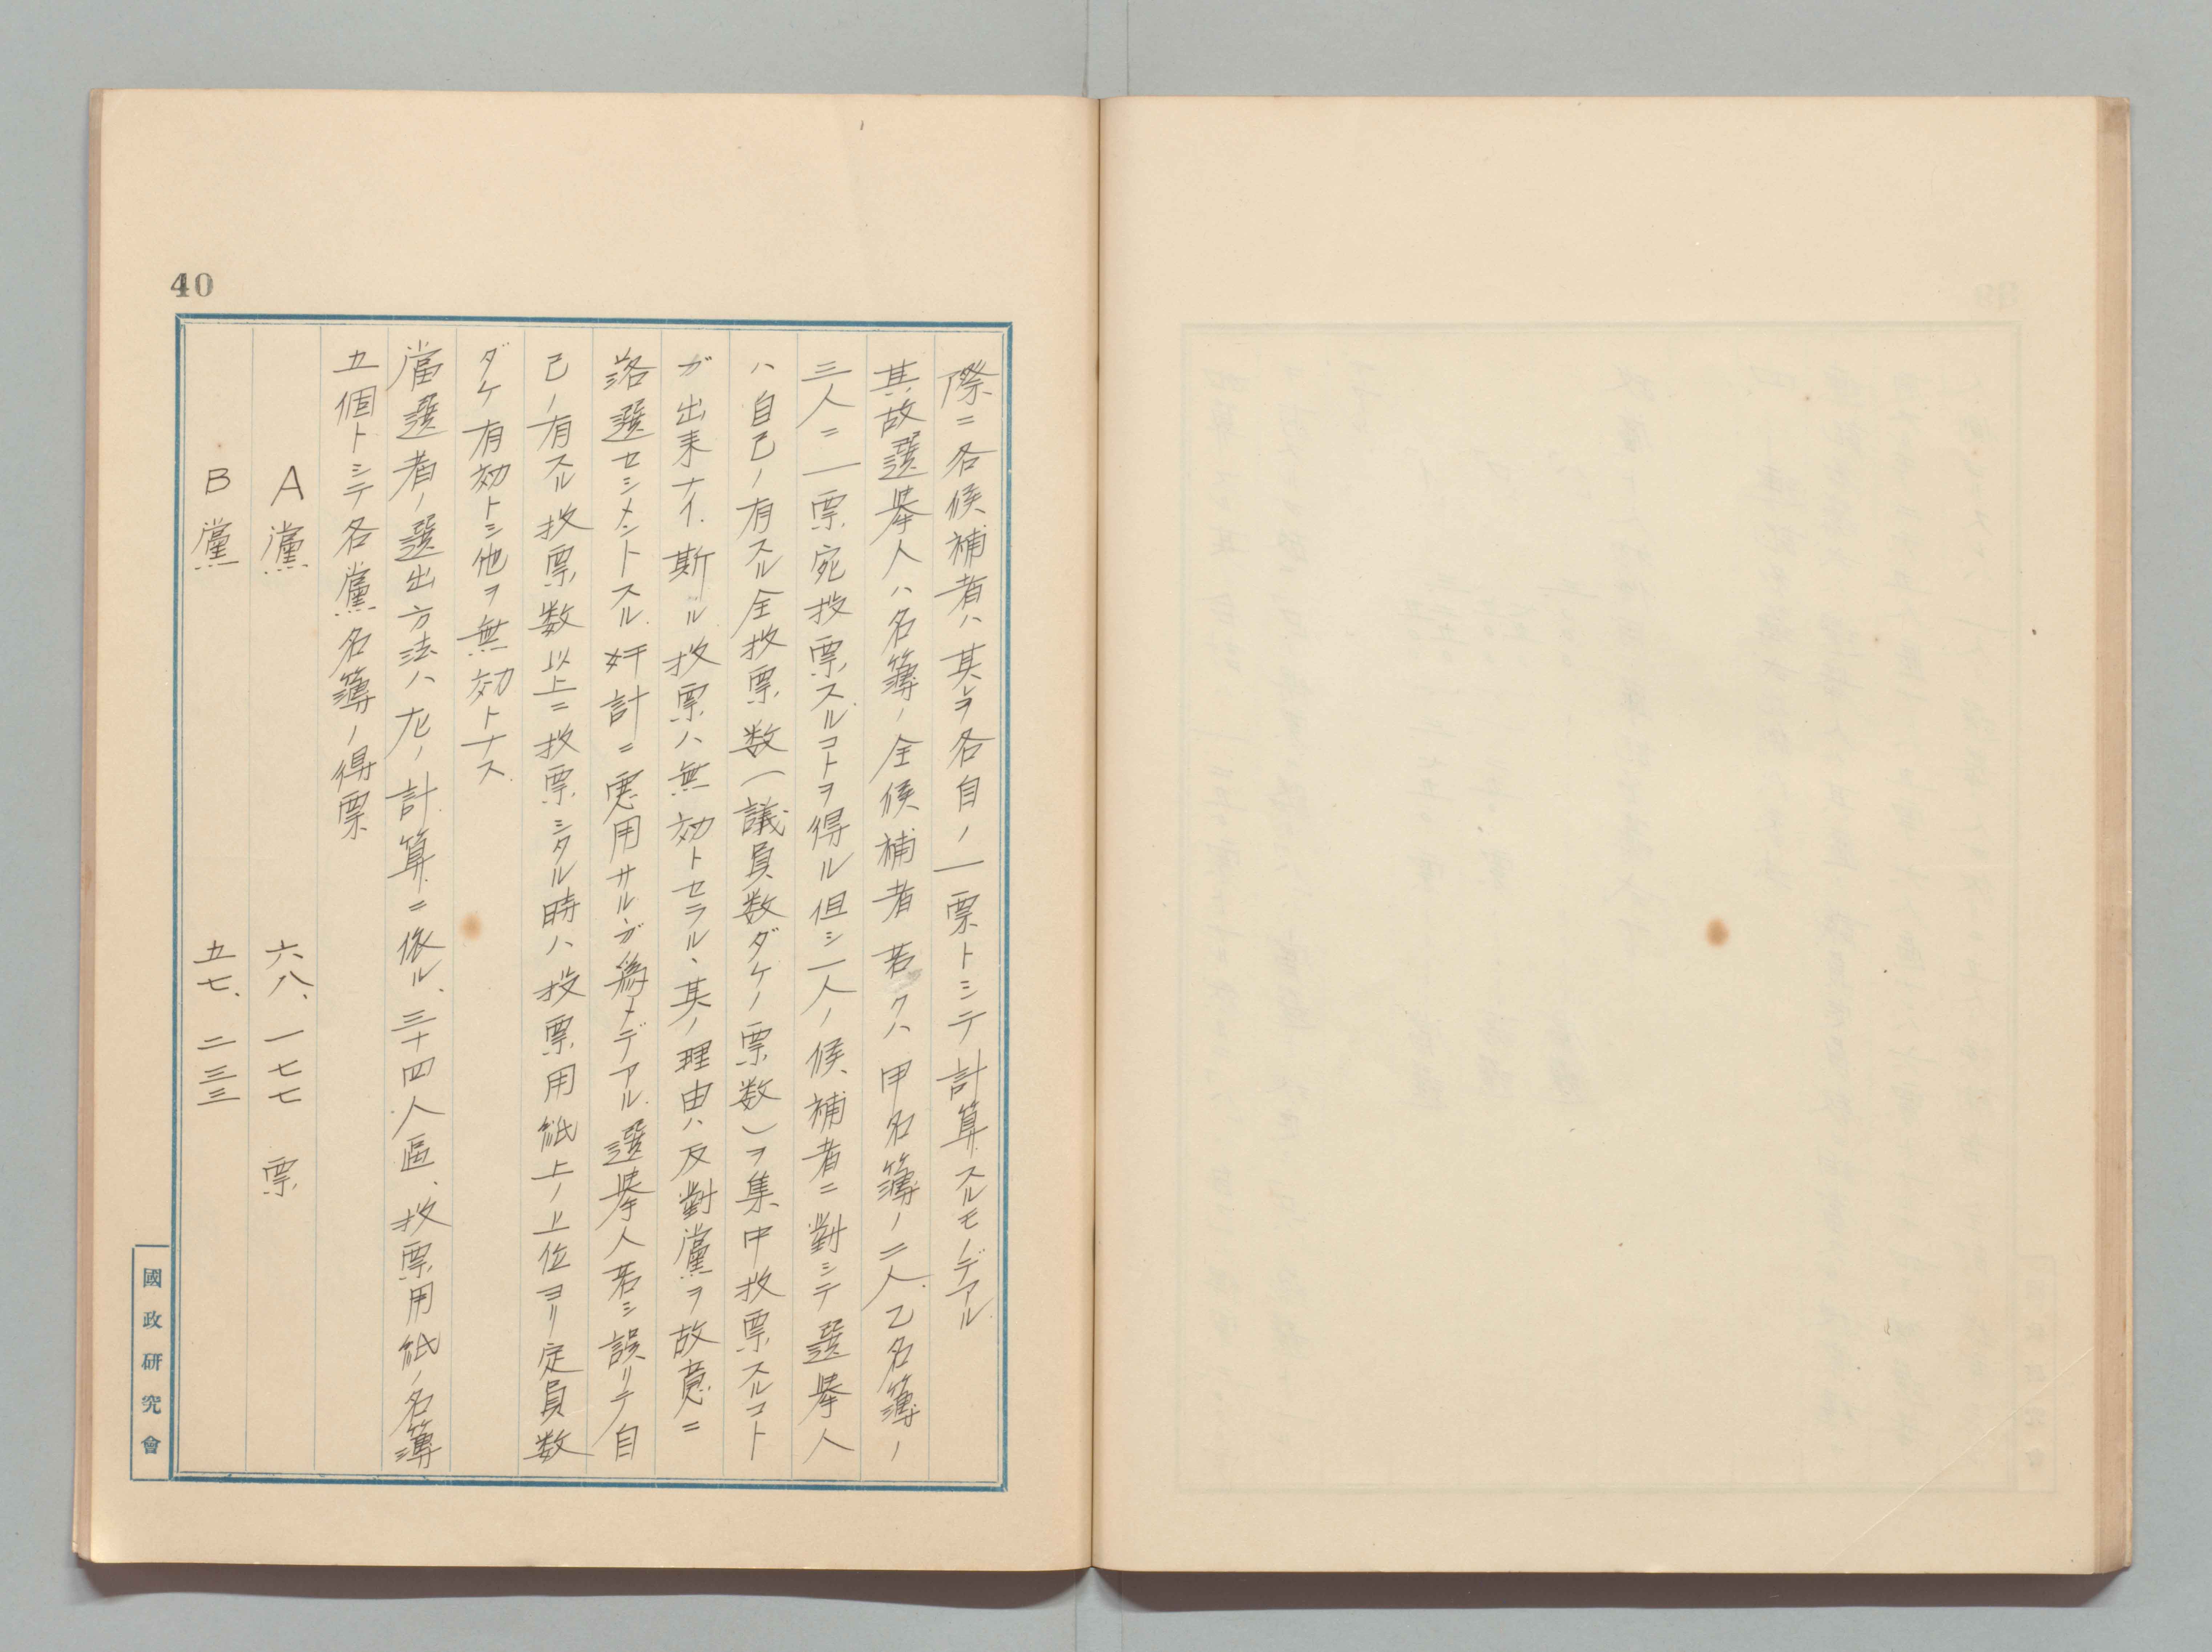 40
際ニ各候補者ハ其レヲ各自ノ一票トシテ計算スルモノデアル
其故選挙人ハ名簿ノ全候補者若クハ甲名簿ノ二人乙名簿ノ
三人ニ一票宛投票スルコトヲ得ル但シ一人ノ候補者ニ對シテ選挙人
ハ自己ノ有スル全投票数(議員数ダケノ票数)ヲ集中投票スルコト
ガ出来ナイ.斯ル投票ハ無効トセラル、其ノ理由ハ反對黨ヲ故意ニ
落選セシメントスル奸計ニ悪用サルガ為メデアル.選挙人若シ誤リテ自
己ノ有スル投票数以上ニ投票シタル時ハ投票用紙上ノ上位ヨリ定員数
ダケ有効トシ他ヲ無効トナス.
當選者ノ選出方法ハ左ノ計算ニ依ル、三十四人區、投票用紙ノ名簿
五個トシテ各黨名簿ノ得票
A黨 六八、一七七 票
B黨 五七、二三三
國政研究會